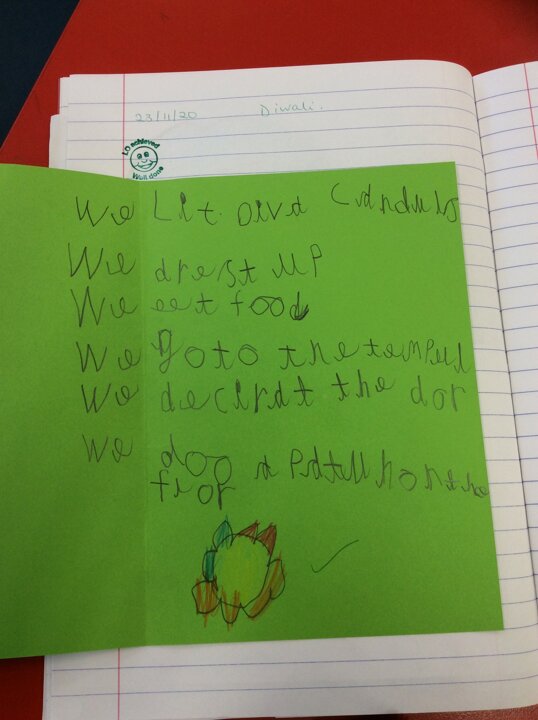 23/11/20 Diwali.
LO achieved
Well done
We Lit. Diva Canduls
We drest up
We eet food
We go to the tempul
We decirdt the dor
We doo a patUN on the
flor